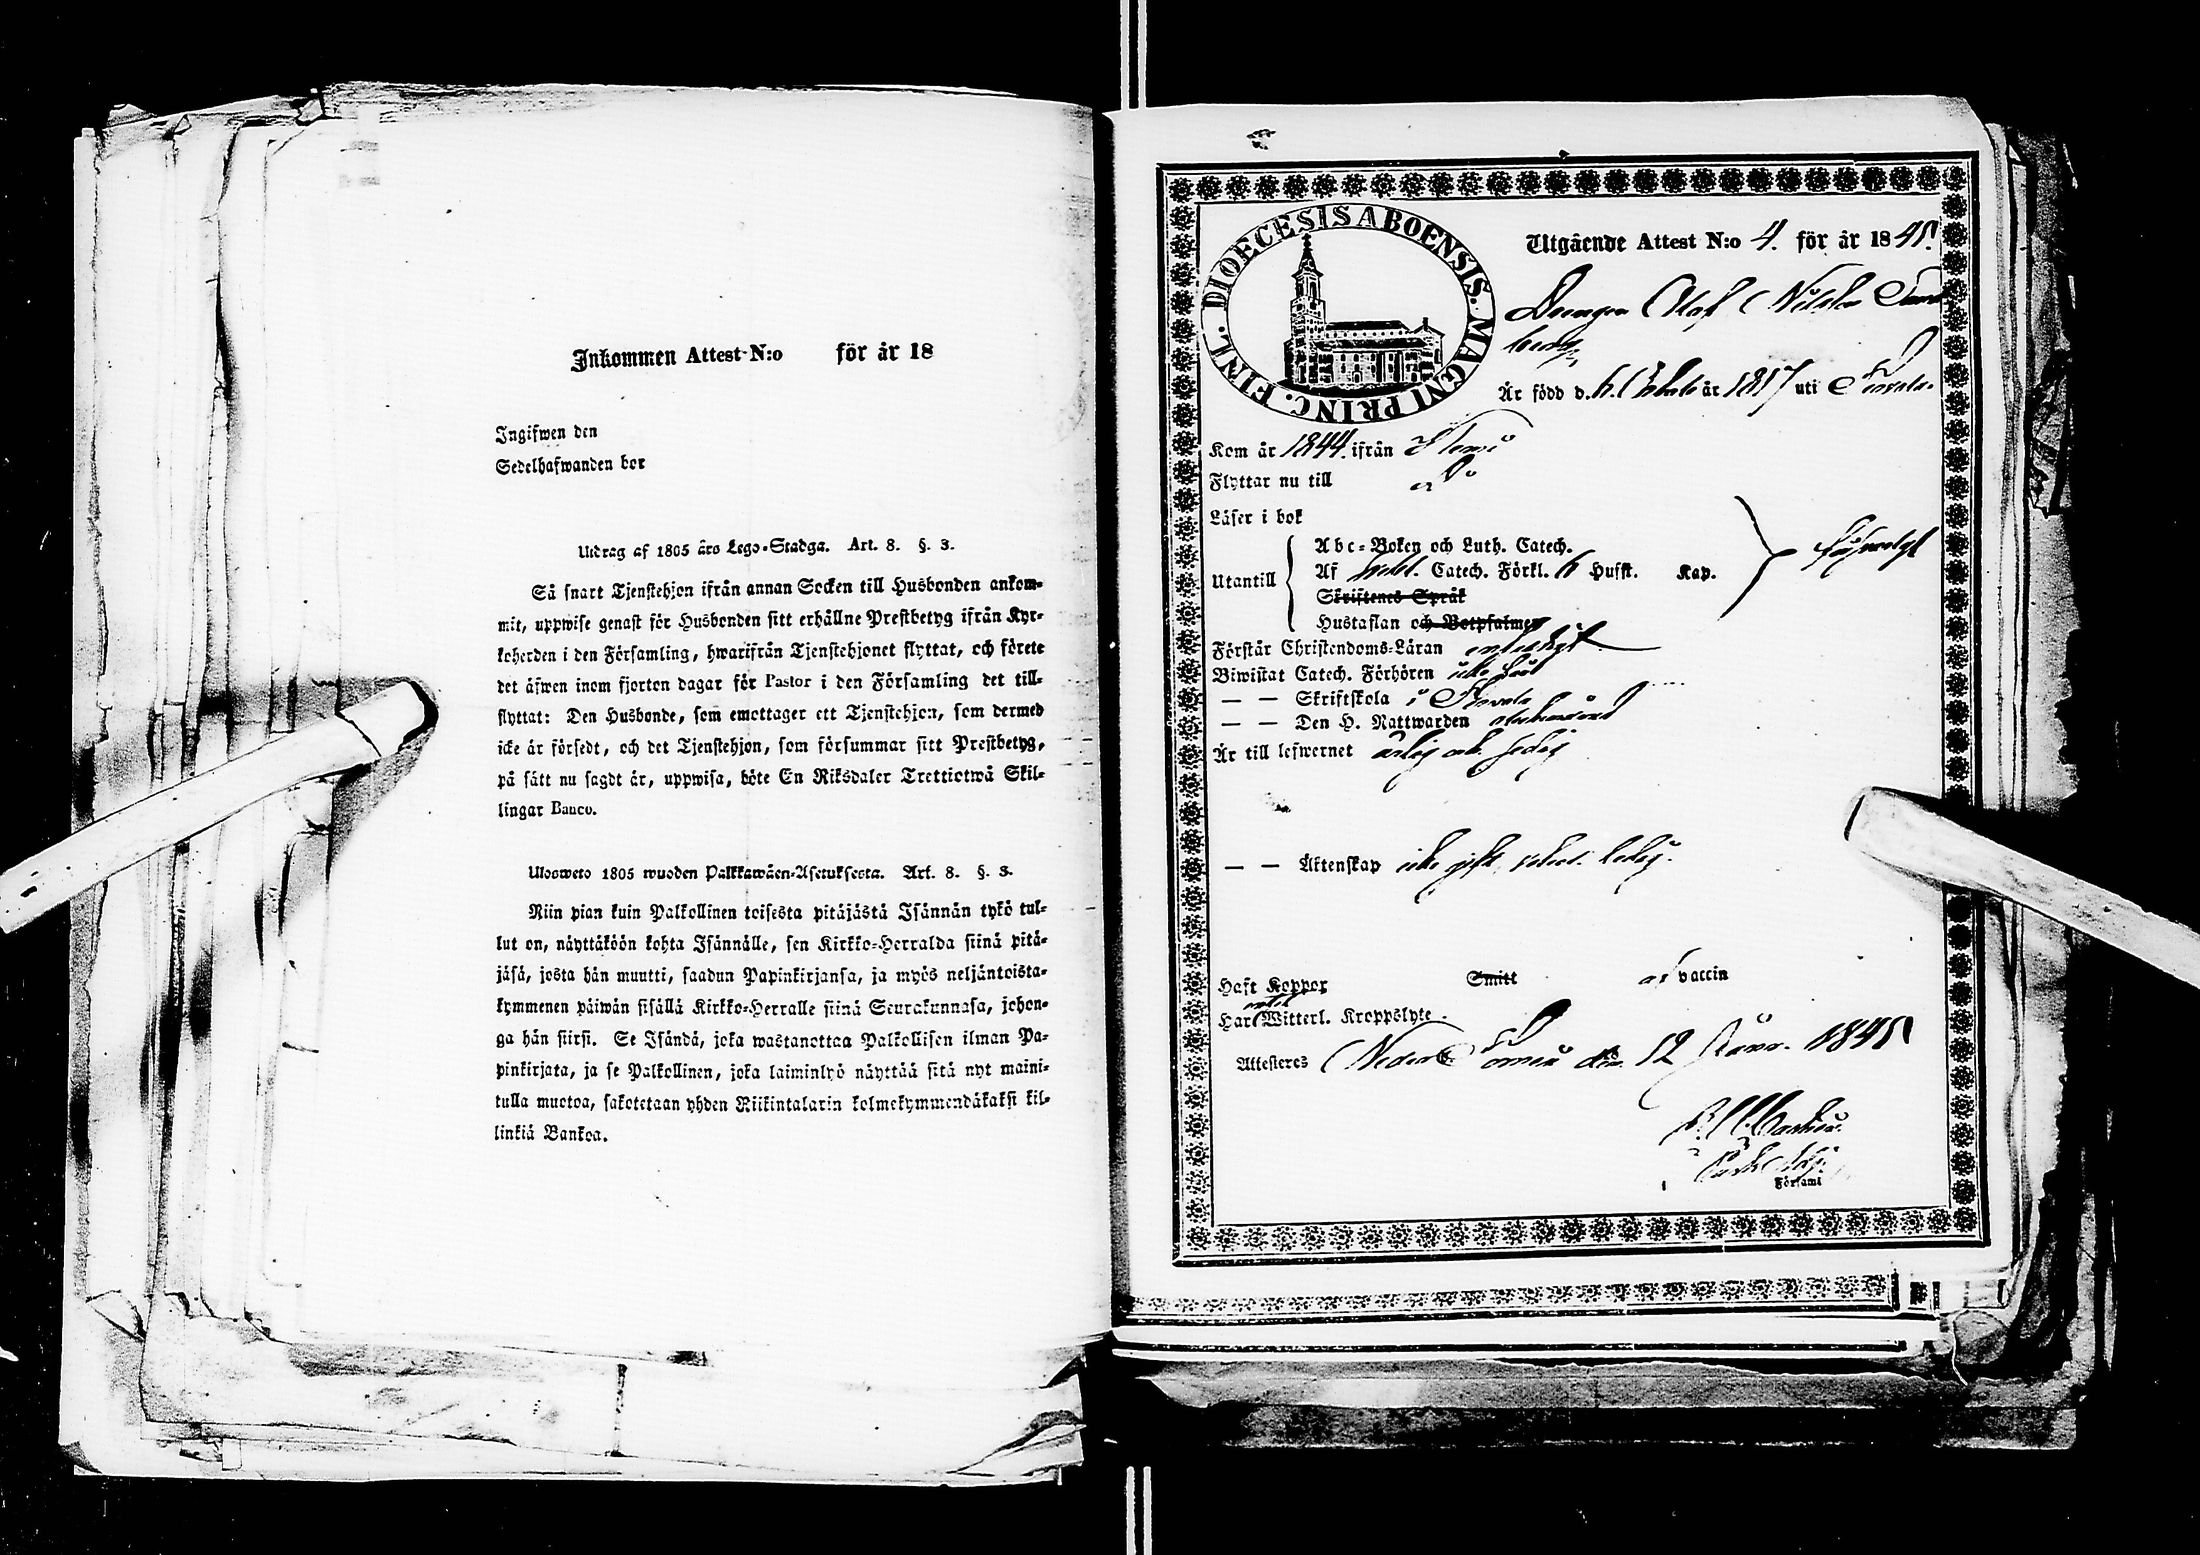 Inkommen Attest N:o för år 18
Ingifwen den
Sedelhafwanden bor
Utdrag af 1805 års Lego-Stadga. Art. 8. §. 3.
Så snart Tjenstehjon ifrån annan Socken till Husbonden ankom-
mit, uppwise genast för Husbonden sitt erhållne Prestbetyg ifrån Kyr-
koherden i den Församling, hwarifrån Tjenstehjonet flyttat, och förete
det äfwen inom fjorton dagar för Pastor i den Församling det till-
flyttat: Den Husbonde, som emottager ett Tjenstehjon, som dermed
icke är försedt, och det Tjenstehjon, som försummar sitt Prestbetyg,
på sätt nu sagdt är, uppwisa, böte En Riksdaler Trettiotwå Skil-
lingar Banco.
Ulosweto 1805 wuoden Palkkawäen-Asetuksesta. Art. 8. §. 3.
Niin pian kuin Palkollinen toisesta pitäjästä Isännän tykö tul-
lut on, näyttäköön kohta Isännälle, sen Kirkko-Herralda siinä pitä-
jäsä, josta hän muutti, saadun Papinkirjansa, ja myös neljäntoista-
kymmenen päiwän sisällä Kirkko-Herralle siinä Seurakunnasa, johon-
ga hän siirsi. Se Isändä, joka wastanottaa Palkollisen ilman Pa-
pinkirjata, ja se Palkollinen, joka laiminlyö näyttää sitä nyt maini-
tulla muotoa, sakotetaan yhden Riikintalarin kolmekymmendäkaksi kil-
linkiä Bankoa.
DIOECESIS ABOENSIS. MAGNI PRINC. FINL.
Utgående Attest N:o 4. för år 1845.
Drengen Olof Nilsson
berg
Är född d. 6. år 1817 uti
Kom år 1844. ifrån
Flyttar nu till
Läser i bok
Utantill
Abc-Boken och Luth. Catech.
Af Catech. Förkl. 6 Hufst. Kap.
Skriftenes Språk
Hustaflan och Botpsalmer
Förstår Christendoms-Läran
Biwistat Catech. Förhören
— — Skriftskola i
— — Den H. Nattwarden
Är till lefwernet ärlig och sedig
— — Äktenskap icke gift, ledig.
Haft Koppor Smitt af vaccin
Har Witterl. Kroppslyte.
Attesteres Neder Torneå den 12 1845
Församl